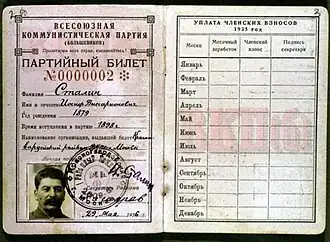 ВСЕСОЮЗНАЯ
КОММУНИСТИЧЕСКАЯ ПАРТИЯ
(БОЛЬШЕВИКОВ)
Пролетарии всех стран, соединяйтесь!
ПАРТИЙНЫЙ БИЛЕТ
№0000002
Фамилия Сталин
Имя и отчество Иосиф Виссарионович
Год рождения 1879
Время вступления в партию 1898 г.
Наименование организации, выдавшей билет
района Москвы
Личная подпись
Секретарь Райкома
29 мая 1936 г.
2
УПЛАТА ЧЛЕНСКИХ ВЗНОСОВ
1935 год
Месяц
Месячный заработок
Членский взнос
Подпись секретаря
Январь
Февраль
Март
Апрель
Май
Июнь
Июль
Август
Сентябрь
Октябрь
Ноябрь
Декабрь